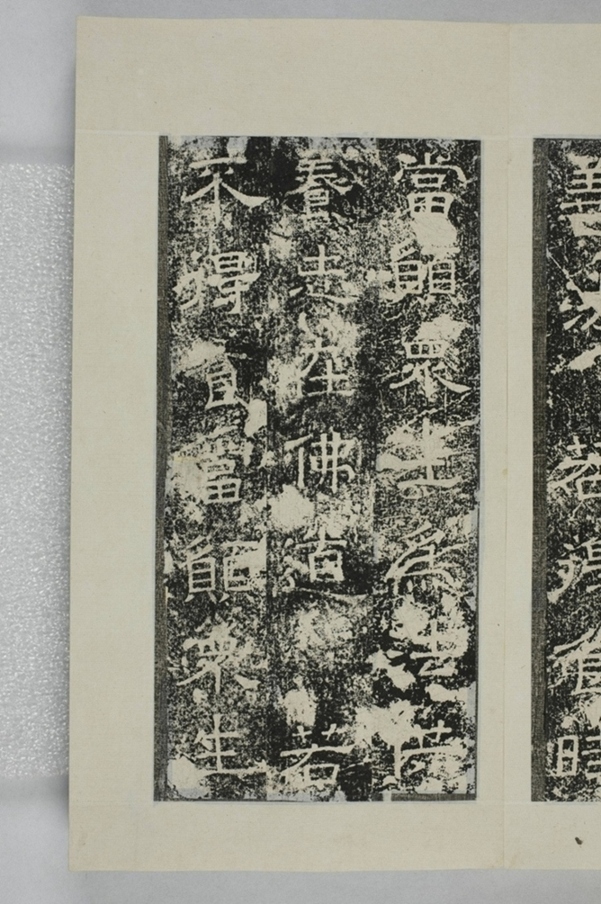 善法若得食時
當願衆生為法供
養志在佛道若
不得食當願衆生